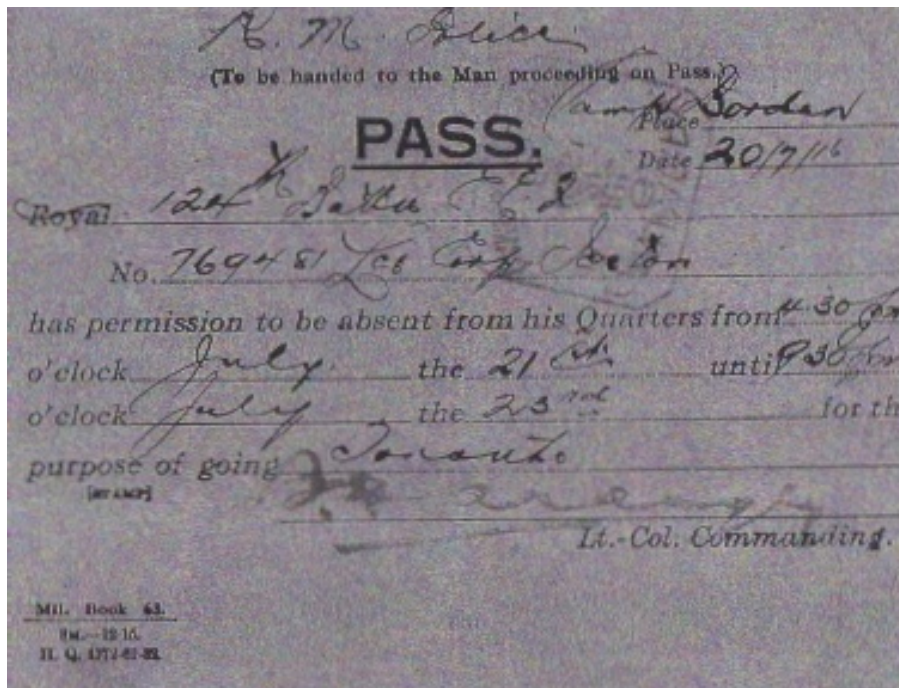 R. M. Police
(To be handed to the Man proceeding on Pass.)
Camp Borden
PASS. Place
Date 20/7/16
Royal 124th Battn C E F
No. 769481 Lce Corp
has permission to be absent from his Quarters from 4.30 pm
o'clock July the 21st until 9.30 pm
o'clock July the 23rd for th
purpose of going Toronto
[STAMP]
Lt.-Col. Commanding.
Mil. Book 63.
H. Q. 1772-